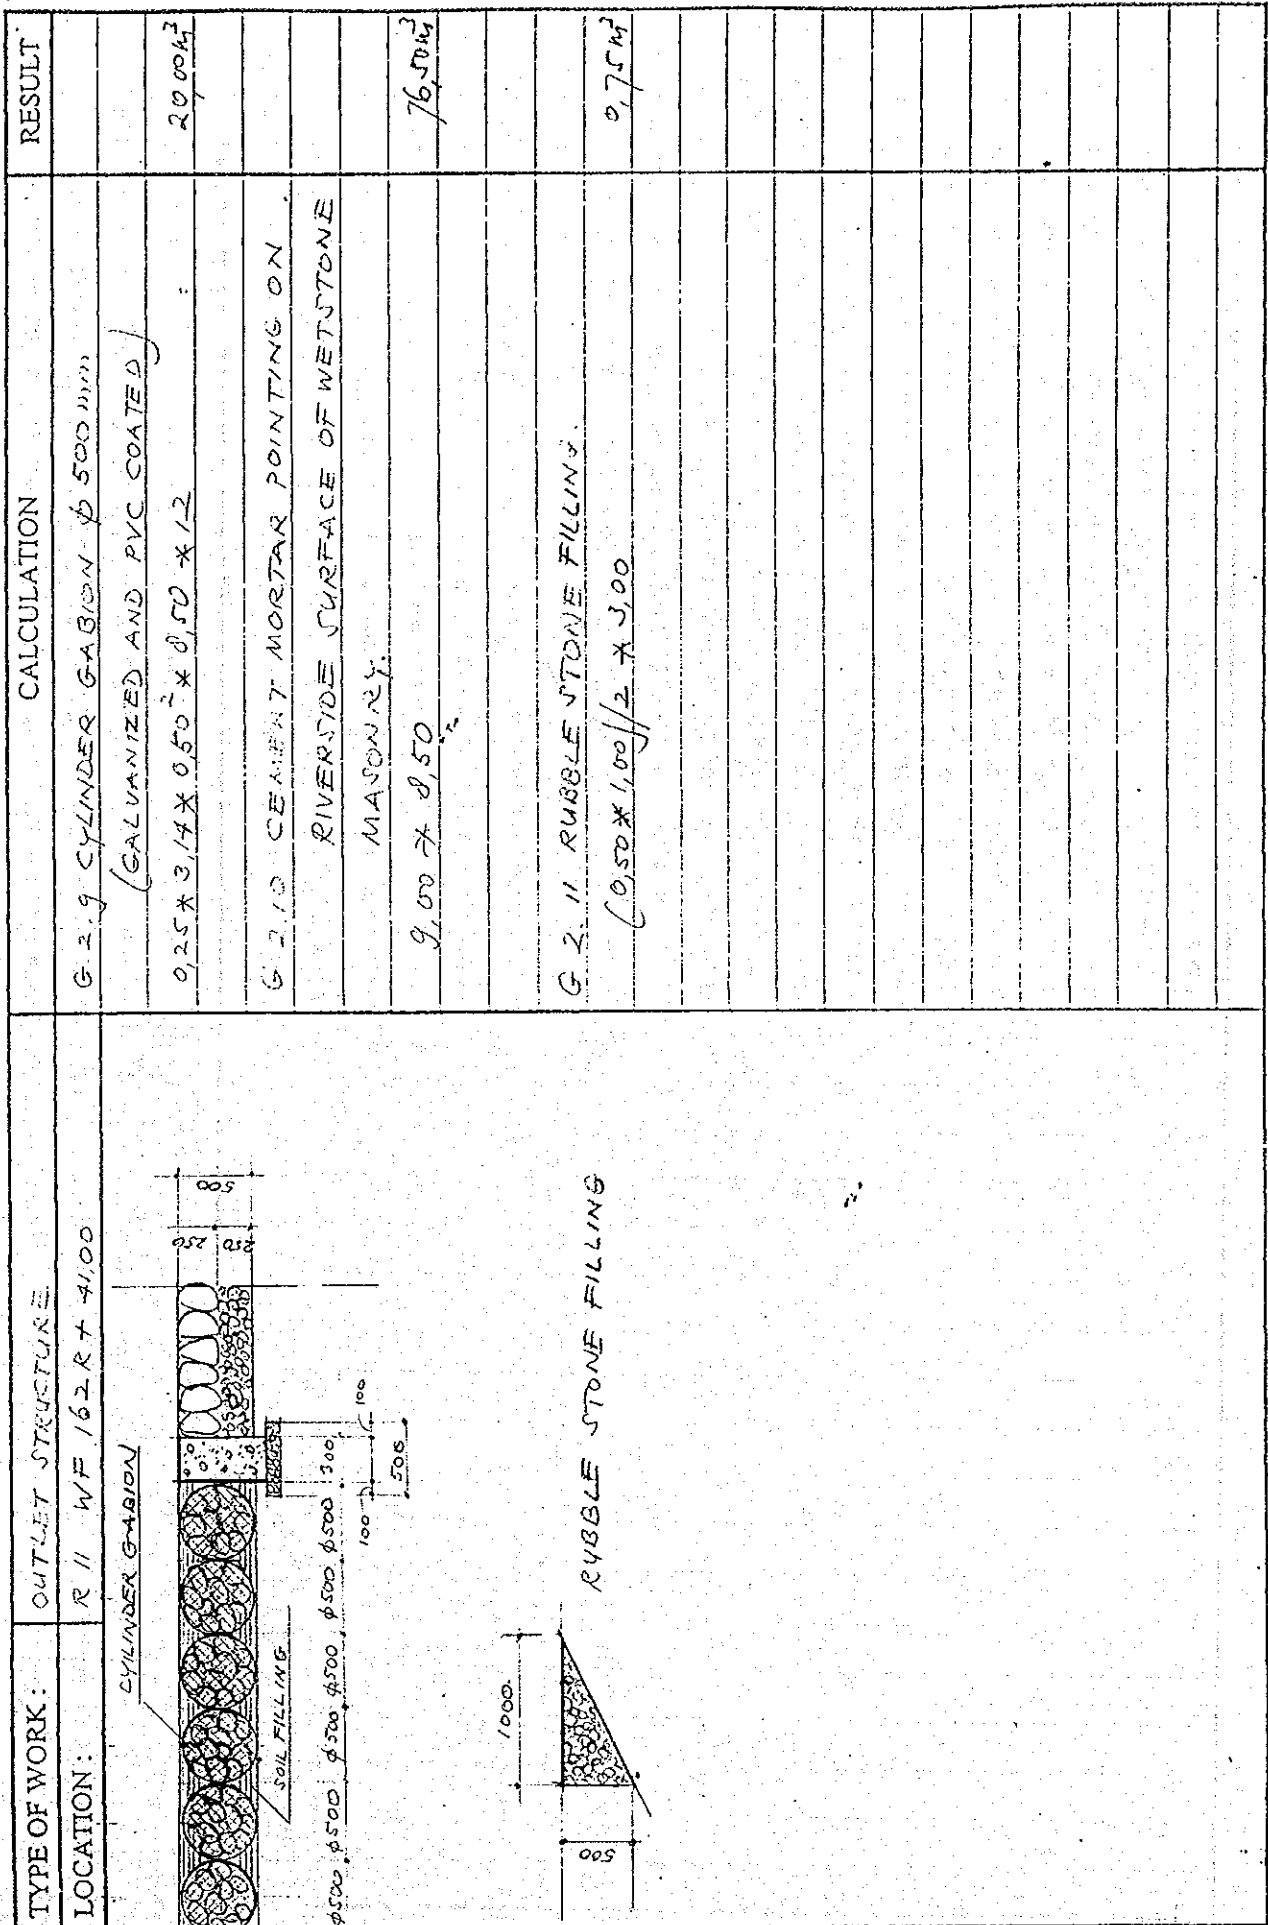 TYPE OF WORK : OUTLET STRUCTURE
LOCATION : R 11 WF 162 R + 41,00
CYLINDER GABION
SOIL FILLING
250 250
500
φ500 φ500 φ500 φ500 φ500 φ500 300
100 100
500
1000
500
RUBBLE STONE FILLING
CALCULATION RESULT
G 2.9 CYLINDER GABION φ 500 mm
(GALVANIZED AND PVC COATED)
0,25 * 3,14 * 0,50² * 8,50 * 12 : 20,00 m³
G 2.10 CEMENT MORTAR POINTING ON
RIVERSIDE SURFACE OF WETSTONE
MASONRY.
9,00 * 8,50 76,50 m³
G 2.11 RUBBLE STONE FILLING.
(0,50 * 1,00)/2 * 3,00 0,75 m³